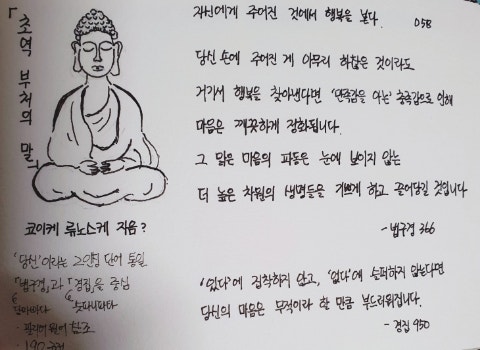 「초역 부처의 말」
자신에게 주어진 것에서 행복을 본다. 058
당신 손에 주어진 게 아무리 하찮은 것이라도
거기서 행복을 찾아낸다면 '만족감을 아는' 충족감으로 인해
마음은 깨끗하게 정화됩니다.
그 맑은 마음의 파동은 눈에 보이지 않는
더 높은 차원의 생명들을 기쁘게 하고 끌어당길 것입니다
- 법구경 366
'없다'에 집착하지 않고, '없다'에 슬퍼하지 않는다면
당신의 마음은 무적이라 할 만큼 부드러워집니다.
- 경집 950
코이케 류노스케 지음?
'당신'이라는 2인칭 단어 통일
『법구경』과 『경집』을 중심
담마파다 숫타니파타
· 팔리어 원어 참조
· 190